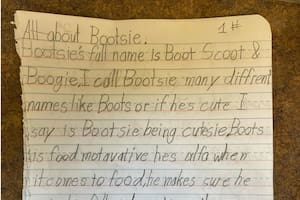 All about Bootsie. 1#
Bootsie's full name is Boot Scoot &
Boogie, I call Bootsie many diffrent
names like Boots or if he's cute I
say is Bootsie being cutsie, Boots
is food motavative hes alfa when
it comes to food, he makes sure he